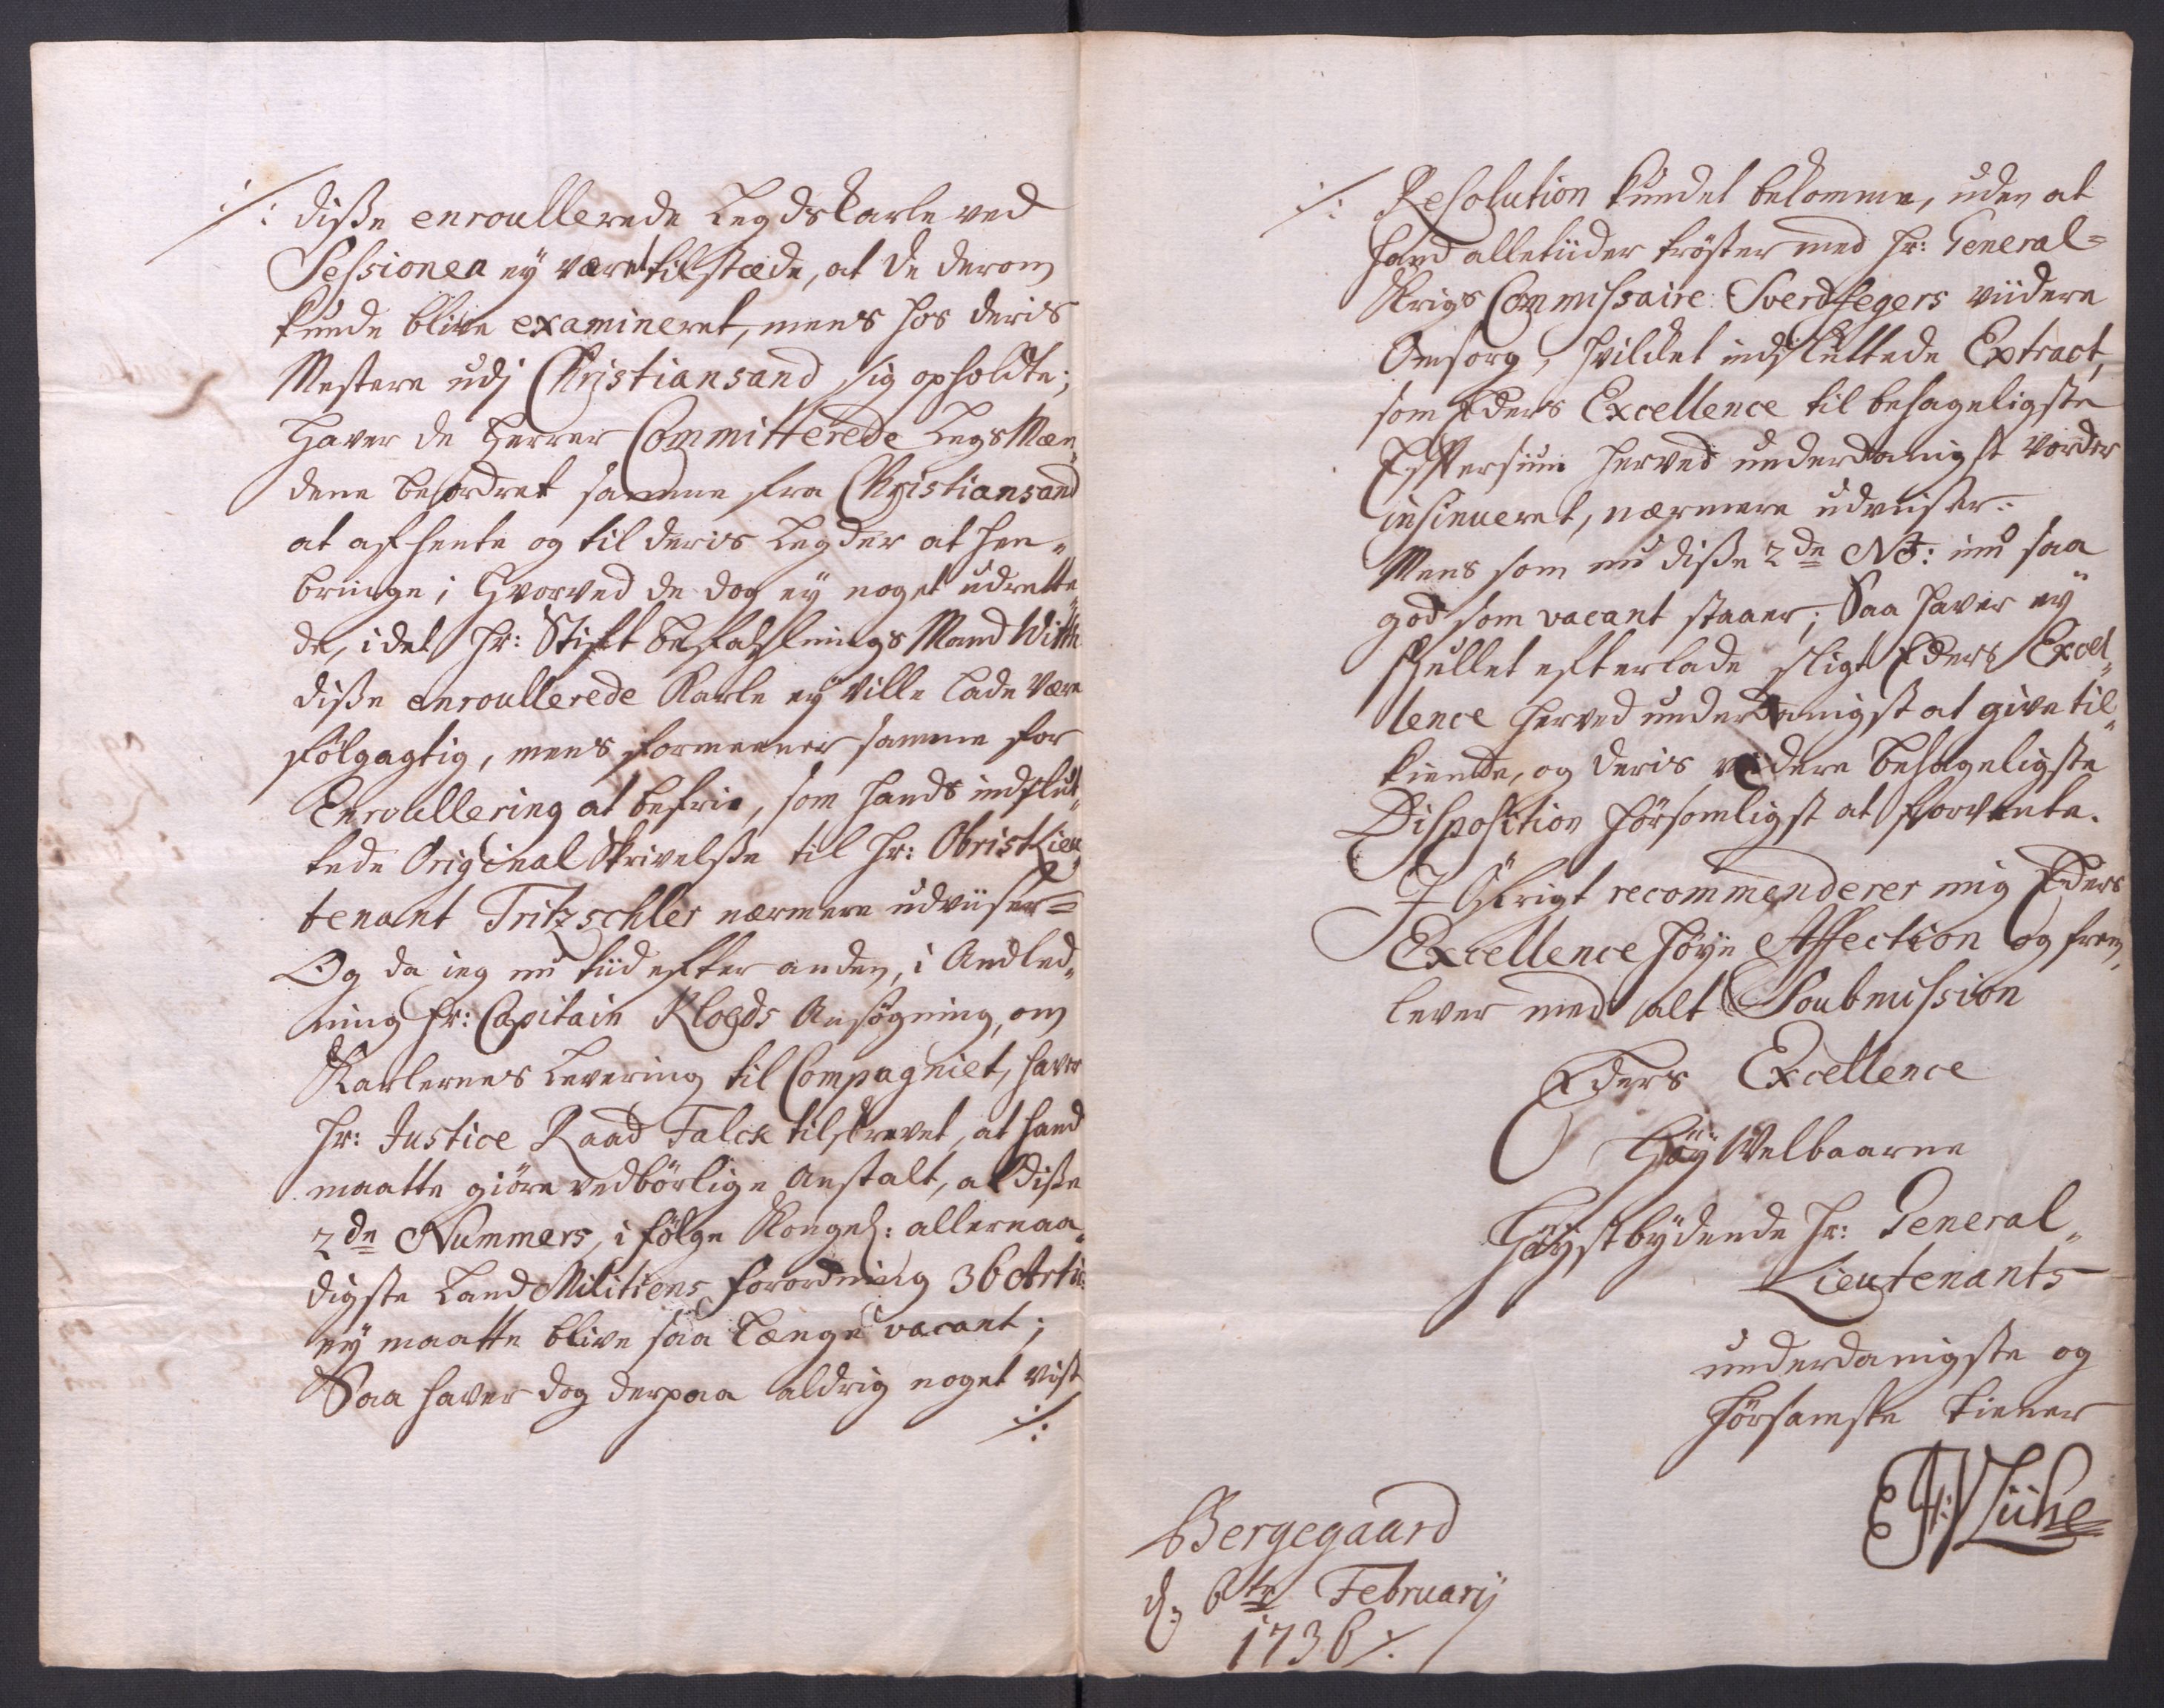 ./: diße enroullerede Legdskarle ved
Sessionen ey været tilstæde, at de derom
kunde blive examineret, mens hos deris
Mestere udj Christiansand sig opholdte;
Haver de Herrer Committerede LegsMæn„
dene beordret samme fra Christiansand
at afhente og til deris Legder at hen„
bringe; Hvorved de dog ey noget udrette„
de, idet Hr: Stift Befahlings Mand Witth
diße enroullerede Karle ey ville lade være
følgagtig, mens formeener samme for
Enroullering at befrie, som hands indslut„
tede Original Skrivelße til Hr: ObristLieu„
tenant Fritzschler nærmere udviiser=
Og da ieg nu tiid efter anden, i Andled„
ning Hr: Capitain Kloeds Ansøgning, om
Karlernes Levering til Compagniet, haver
Hr: Justice Raad Falck tilskrevet, at hand
maatte giöre vedbörlige Anstalt, at diße
2de Nummers, i fölge Kongel: allernaa„
digste Land Militiens Forordning 36 Arti:
ey maatte blive saa længe vacant;
Saa haver dog derpaa aldrig noget vist
./:
./: Resolution kundet bekomme, uden at
hand alletiider tröster med Hr: General=
Krigs Commissaire Sverdfegers viidere
Omsorg, hvilket indsluttede Extract,
som Eders Excellence til behageligste
Effterſiun herved underdanigst vorder
insinueret, nærmere udviiser.
Mens som nu diße 2de No: nu saa
god som vacant staaer; Saa haver ey
skullet efterlade sligt Eders Excel„
lence herved underdanigst at give til„
kiende, og deris viidere behageligste
Disposition hörsomligst at forvente.
I Öfrigt recommenderer mig Eders
Excellence höye Affection og frem„
lever med alt Soubmission
Eders Excellence
HöyWelbaarne
Höystbydende Hr: General„
Lieutenants
underdanigste og
hörsamste tiener
Lühe
Bergegaard
d: 6te Februarij
1736 ./.